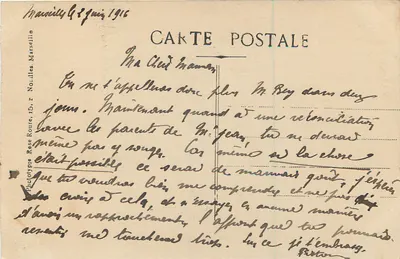 Marseille le 2 Juin 1916
CARTE POSTALE
Ma Chère Maman
On ne t'appellera donc plus M. Bey dans deux
jours. Maintenant quand à une réconciliation
avec les parents de Mr Jean, tu ne devrais
même pas y songer. Car même si la chose
était possible ce serait de mauvais goût, j'espère
que tu voudras bien me comprendre et ne pas
croire à cela, et n'essayer en aucune manière
d'avoir un rapprochement. L'affront que tu pourrais
ressentir me toucherait trop. Sur ce je t'embrasse
Rue Noailles, Marseille